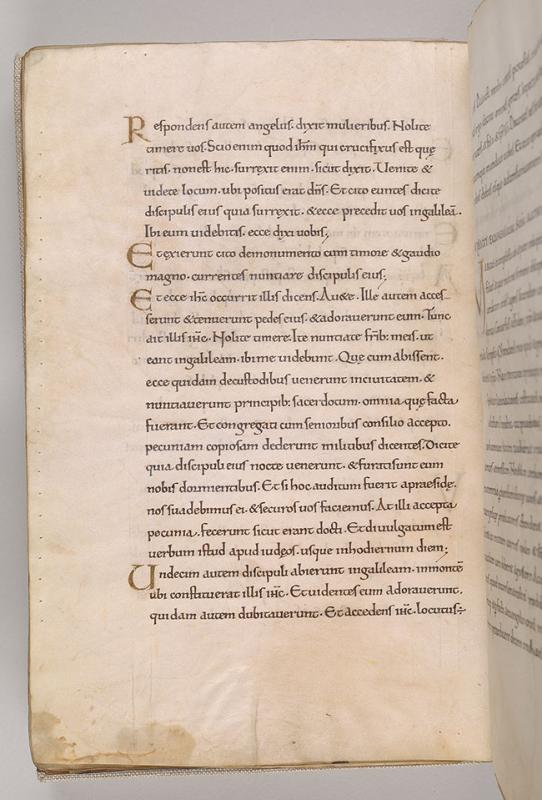 Respondens autem angelus. dixit mulieribus. Nolite
timere uos. Scio enim quod ihm̄ qui crucifixus est quę
ritis. non est hic. surrexit enim. sicut dixit. Uenite &
uidete locum. ubi positus erat dn̄s. Et cito euntes dicite
discipulis eius quia surrexit. & ecce precedit uos in galileā.
Ibi eum uidebitis. ecce dixi uobis;
Et exierunt cito de monumento cum timore & gaudio
magno. currentes nuntiare discipulis eius;
Et ecce ihc̄ occurrit illis dicens. Au&e. Ille autem acces
serunt & tenuerunt pedes eius. & adorauerunt eum. Tunc
ait illis ihc̄. Nolite timere. Ite nuntiate frīb; meis. ut
eant in galileam. ibi me uidebunt. Quę cum abissent.
ecce quidam de custodibus uenerunt in ciuitatem. &
nuntiauerunt principib; sacerdotum. omnia quę facta
fuerant. Et congregati cum senioribus consilio accepto.
pecuniam copiosam dederunt militibus dicentes. Dicite
quia discipuli eius nocte uenerunt. & furati sunt eum
nobis dormientibus. Et si hoc auditum fuerit a praeside.
nos suadebimus ei. & securos uos faciemus. At illi accepta
pecunia. fecerunt sicut erant docti. Et diuulgatum est
uerbum istud apud iudęos. usque in hodiernum diem;
Undecim autem discipuli abierunt in galileam. in montē
ubi constituerat illis ihc̄. Et uidentes eum adorauerunt.
quidam autem dubitauerunt. Et accedens ihc̄. locutus÷